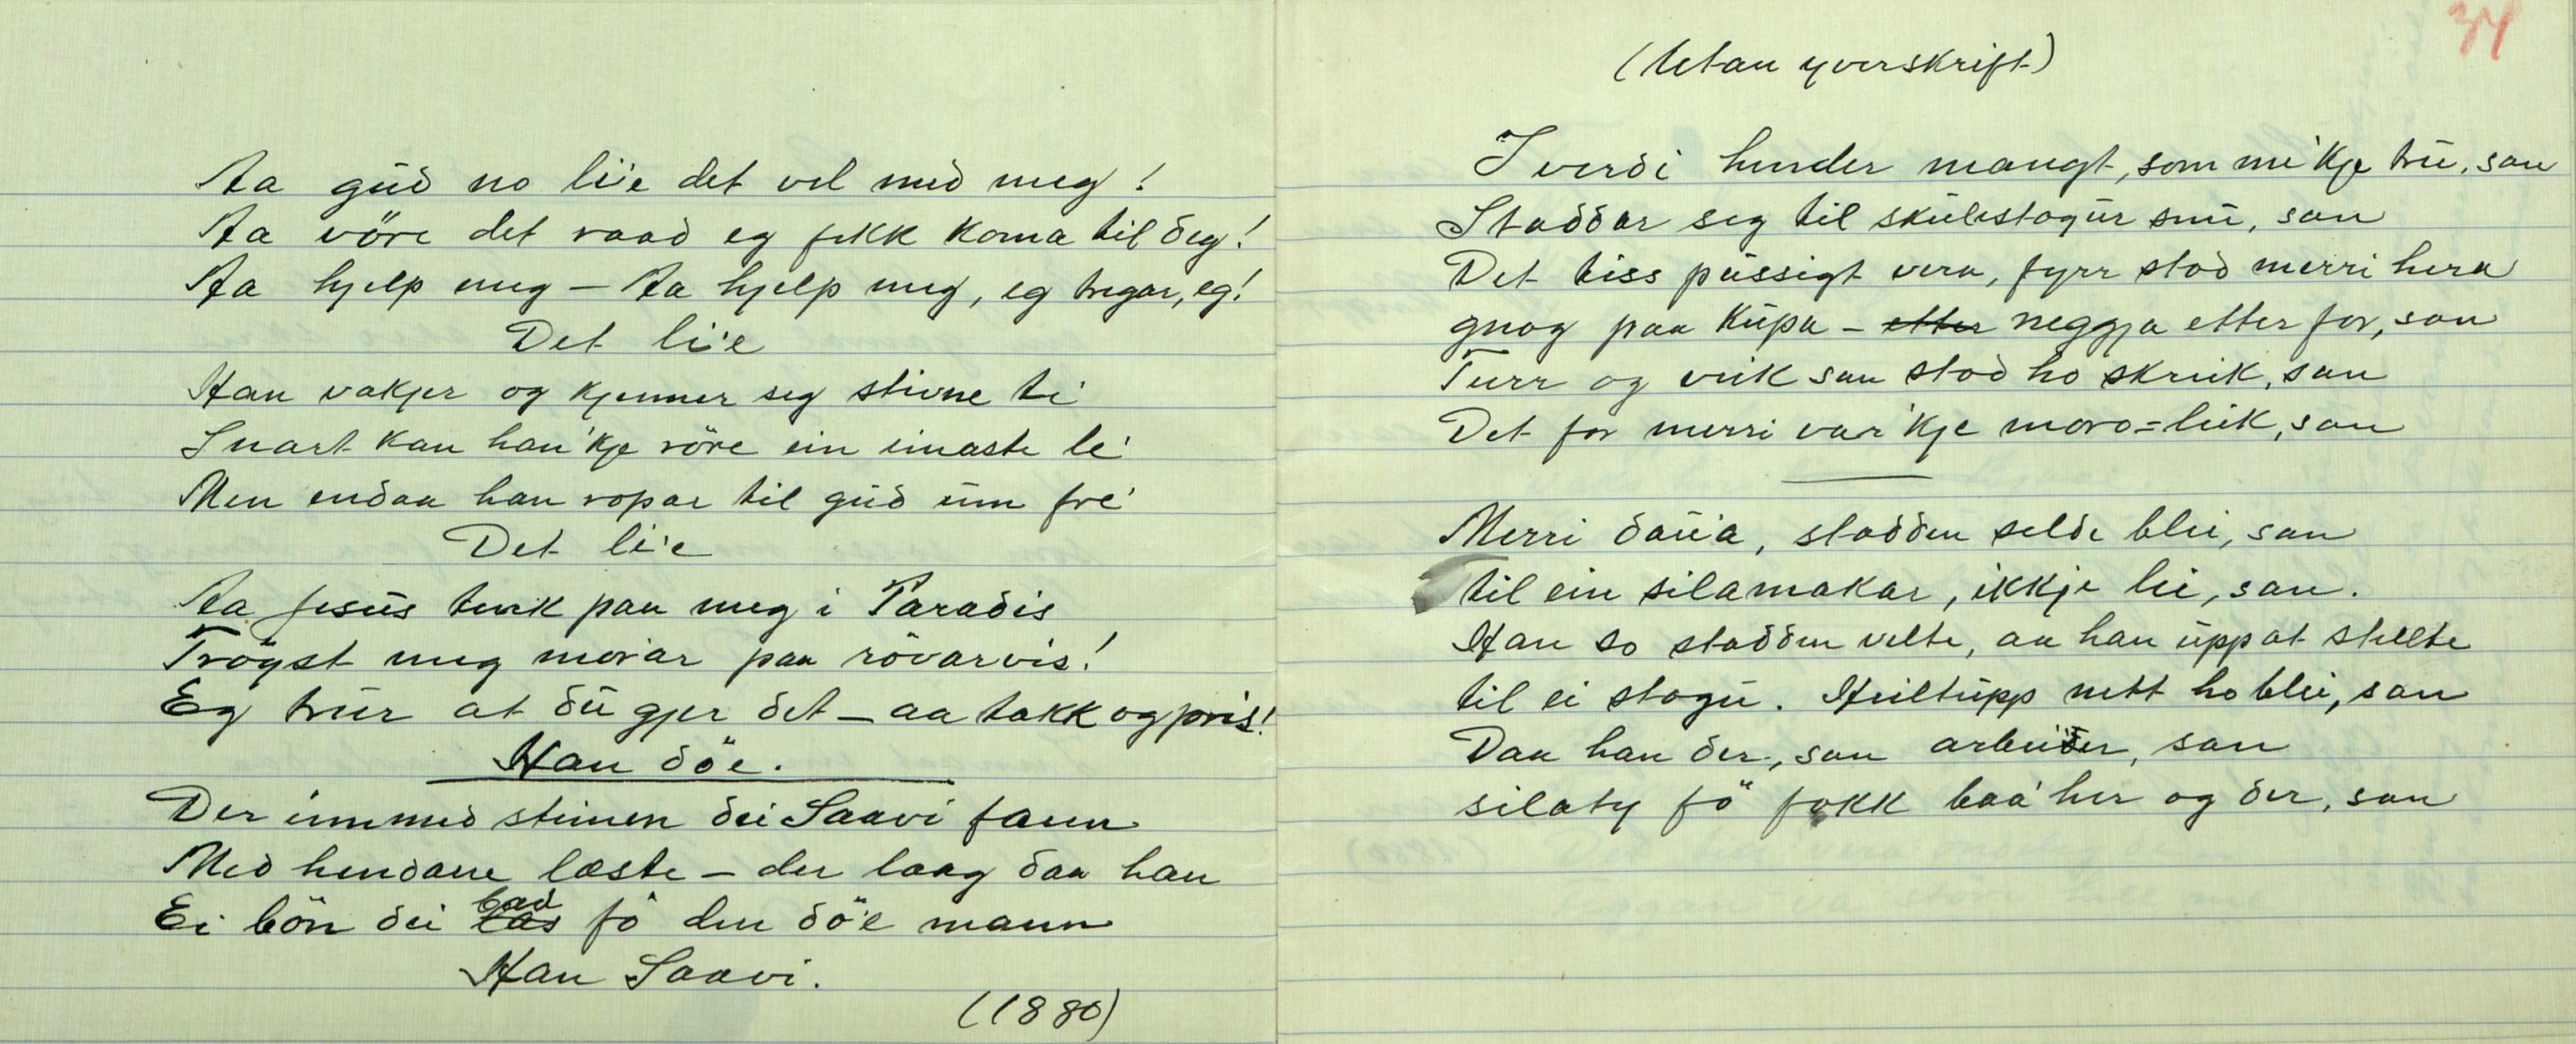 Aa gud no li'e det vel med meg!
Aa vöre det raad eg fekk koma til deg!
Aa hjelp meg – Aa hjelp meg, eg tregar, eg!
Det li'e
Han vakjer og kjenner seg stivne te'
Snart kan han 'kje röre ein einaste le'
Men endaa han ropar til gud um fre'
Det li'e
Aa Jesus tenk paa meg i Paradis
Trögst meg morar paa rövarvis!
Eg truer at du gjer det – aa takk og pris!
Han döe.
Der immed steinen dei Saavi fann
Med hendane læste – der laag daa han
Ei bön dei bad fö den dö'e mann
Han Saavi.
(1880)
34
(Utan yverskrift)
I verdi hender mangt, som me 'kje tru, san
Staddar seg til skulestogur snu, san
Det tiss pussigt vera, fyrr stod merri hera
gnog paa Kupa – etter neggja etter for, san
Turr og veik san stod ho skeik, san
Det for merri var 'kje moro=leik, san
Merri daua, stadden selde blei, san
til ein silamakar, ikkje lei, san.
Han so stadden velte, aa han uppat stellte
til ei stogu. Heiltupp nett ho blei, san
Daa han der, san arbeider, san
silaty fö fokk baa' her og der, san